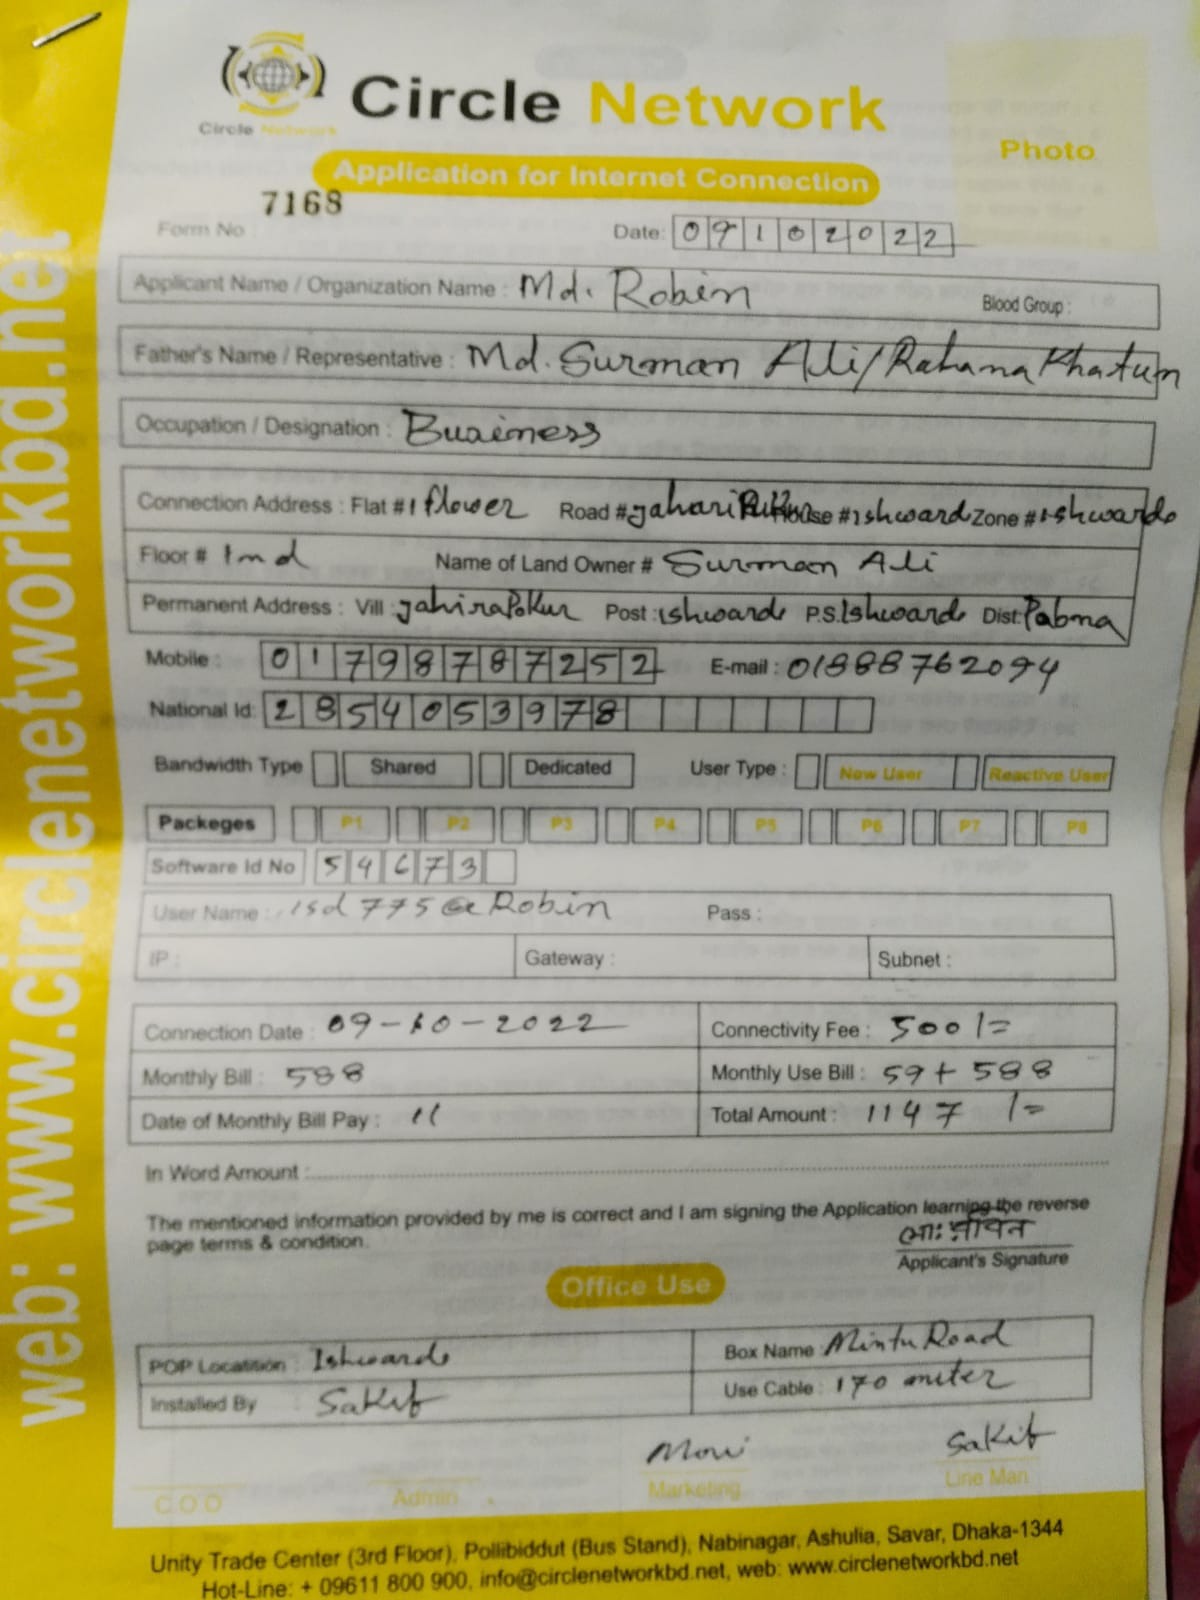 Circle Network
Circle Network
Photo
Application for Internet Connection
Form No : 7168
Date: 09102022
Applicant Name / Organization Name : Md. Robin Blood Group :
Father's Name / Representative : Md. Surman Ali/Rahana Khatun
Occupation / Designation : Business
Connection Address : Flat #1 flower Road # jahari Pukur House # Ishward Zone # Ishwardi
Floor # 1nd Name of Land Owner # Surman Ali
Permanent Address : Vill : jahiraPokur Post : ishwardi P.S. Ishwardi Dist: Pabna
Mobile : 01798787252 E-mail : 01888762094
National Id: 2854053978
Bandwidth Type Shared Dedicated User Type : New User Reactive User
Packeges P1 P2 P3 P4 P5 P6 P7 P8
Software Id No 54673
User Name : isd775@Robin Pass :
IP : Gateway : Subnet :
Connection Date : 09-10-2022 Connectivity Fee : 500/=
Monthly Bill : 588 Monthly Use Bill : 59+588
Date of Monthly Bill Pay : 11 Total Amount : 1147/=
In Word Amount :
The mentioned information provided by me is correct and I am signing the Application learning the reverse
page terms & condition.
Applicant's Signature
Office Use
POP Locatition : Ishwardi Box Name : Mintu Road
Installed By : Sakib Use Cable : 170 miter
Sakib
C.O.O Admin Marketing Line Man
Unity Trade Center (3rd Floor), Pollibiddut (Bus Stand), Nabinagar, Ashulia, Savar, Dhaka-1344
Hot-Line: + 09611 800 900, info@circlenetworkbd.net, web: www.circlenetworkbd.net
web: www.circlenetworkbd.net